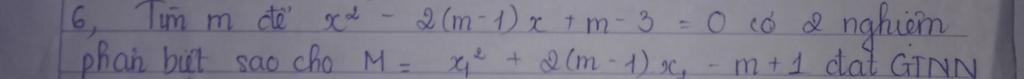 6, Tìm m để x² - 2(m-1)x + m - 3 = 0 có 2 nghiệm
phân biệt sao cho M = x₁² + 2(m-1)x₁ - m + 1 đạt GTNN